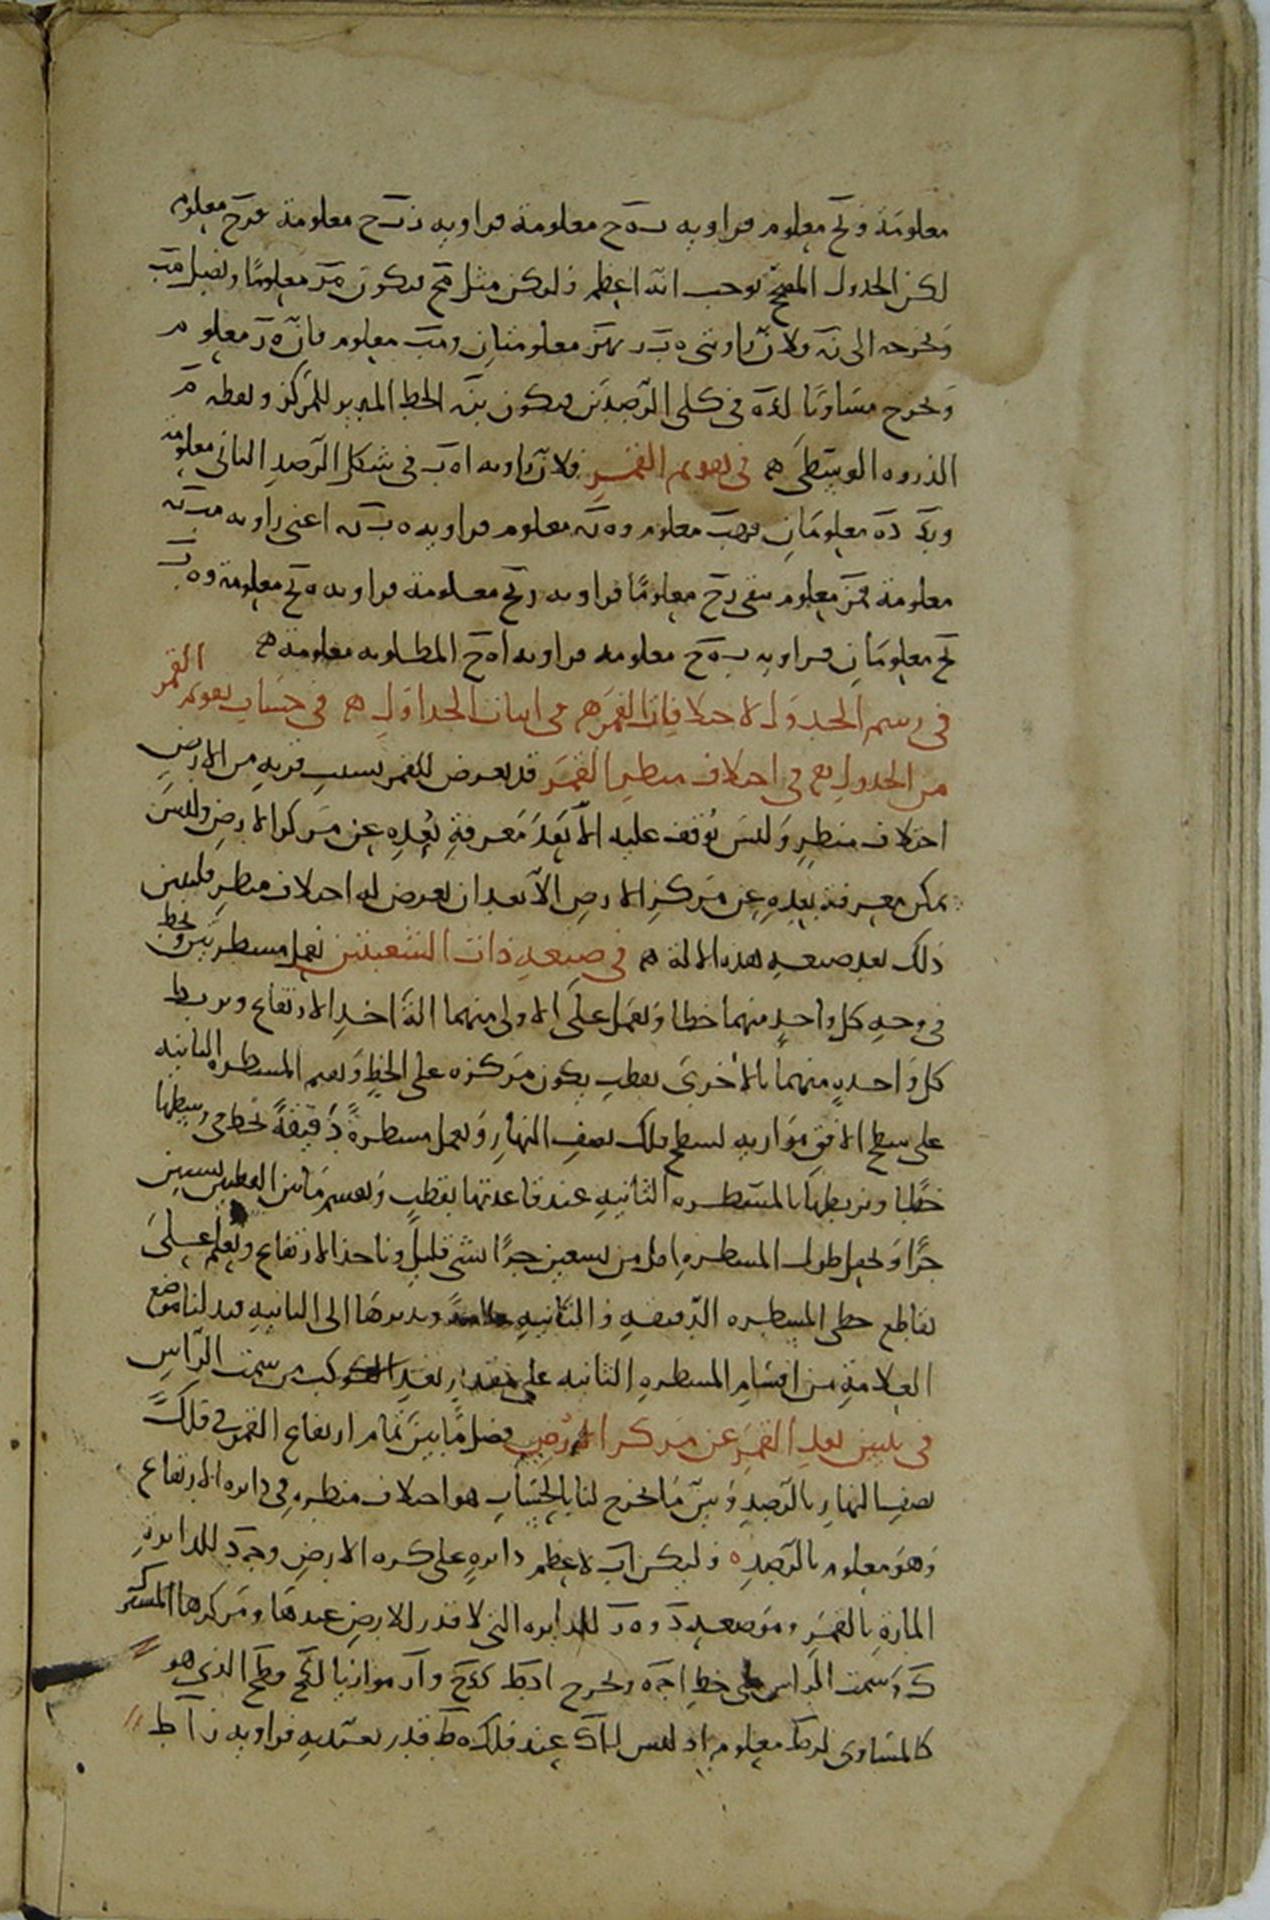 معلومة وبح معلوم فزاويه ب ه ح معلومة فزاويه د ب ح معلومة فرح معلوم
لكن الجدول المصحح يوجب انه اعظم وليكن مثل مح فيكون مر معلوما ونصل مب
ونخرجه الى نه ولان زاويتى ه ب د معلومتان ومب معلوم فان ه ر معلوم
ونخرج مساويا له فى كلى الرصدين فيكون بينه الخط المدير للمركز ونقطه م
الذروه الوسطى ه فى تقويم القمر ولان زاويه ا ه ب فى شكل الرصد الثانى معلومة
وبد ده معلومان فهب معلوم وه نه معلوم فزاويه ه ب نه اعنى زاويه مب نه
معلومة فمر معلوم يبقى رح معلوما فزاويه ربح معلومة فزاويه ه بح معلومة وه ب
بح معلومان فزاويه ب ه ح معلومه فزاويه ا ه ح المطلوبه معلومة ه
فى رسم الجدول لاختلافات القمر ه فى اثبات الجداول ه فى حساب تقويم القمر
من الجدول مع فى اختلاف منظر القمر قد يعرض للقمر بسبب قربه من الارض
اختلاف منظر وليس يوقف عليه الا بعد معرفة بعده عن مركز الارض وليس
يمكن معرفة بعده عن مركز الارض الا بعد ان يعرض له اختلاف منظر فليبين
ذلك بعد صنعه هذه الالة ه فى صنعه ذات الشعبتين نعمل مسطرتين ونخط
فى وجه كل واحد منهما خطا ونعمل على الاولى منهما الة اخذ الارتفاع ونربط
كل واحده منهما بالاخرى بقطب يكون مركزه على الخط ونقيم المسطره الثانيه
على سطح الافق موازيه لسطح فلك نصف النهار ونعمل مسطرة دقيقة نخط فى وسطها
خطا ونربطها بالمسطره الثانيه عند قاعدتها بقطب ونقسم ما بين القطبين بستين
جزا ونجعل طول المسطره اقل من تسعين جزا بشى قليل وناخذ الارتفاع ونعلم على
تقاطع خطى المسطره الدقيقه والثانيه علامة ونديرها الى الثانيه فيدلنا موضع
العلامة من اقسام المسطره الثانيه على مقدار بعد الكوكب من سمت الراس
فى تبيين بعد القمر عن مركز الارض فضل ما بين تمام ارتفاع القمر فى فلك
نصف النهار بالرصد وبين ما يخرج لنا بالحساب هو اختلاف منظره فى دايره الارتفاع
وهو معلوم بالرصد ه وليكن اب لاعظم دايره على كره الارض وجد للدايره
المارة بالقمر وموضعه د وه ر للدايره التى لا قدر للارض عندها ومركزها المشترك
ك وسمت الراس على خط اجه ونخرج ادط كدح وار موازيا لكح وطح الذى هو
كالمساوى لرط معلوم اذ ليس لاك عند فلك ه ط قدر يعتد به فزاويه راط